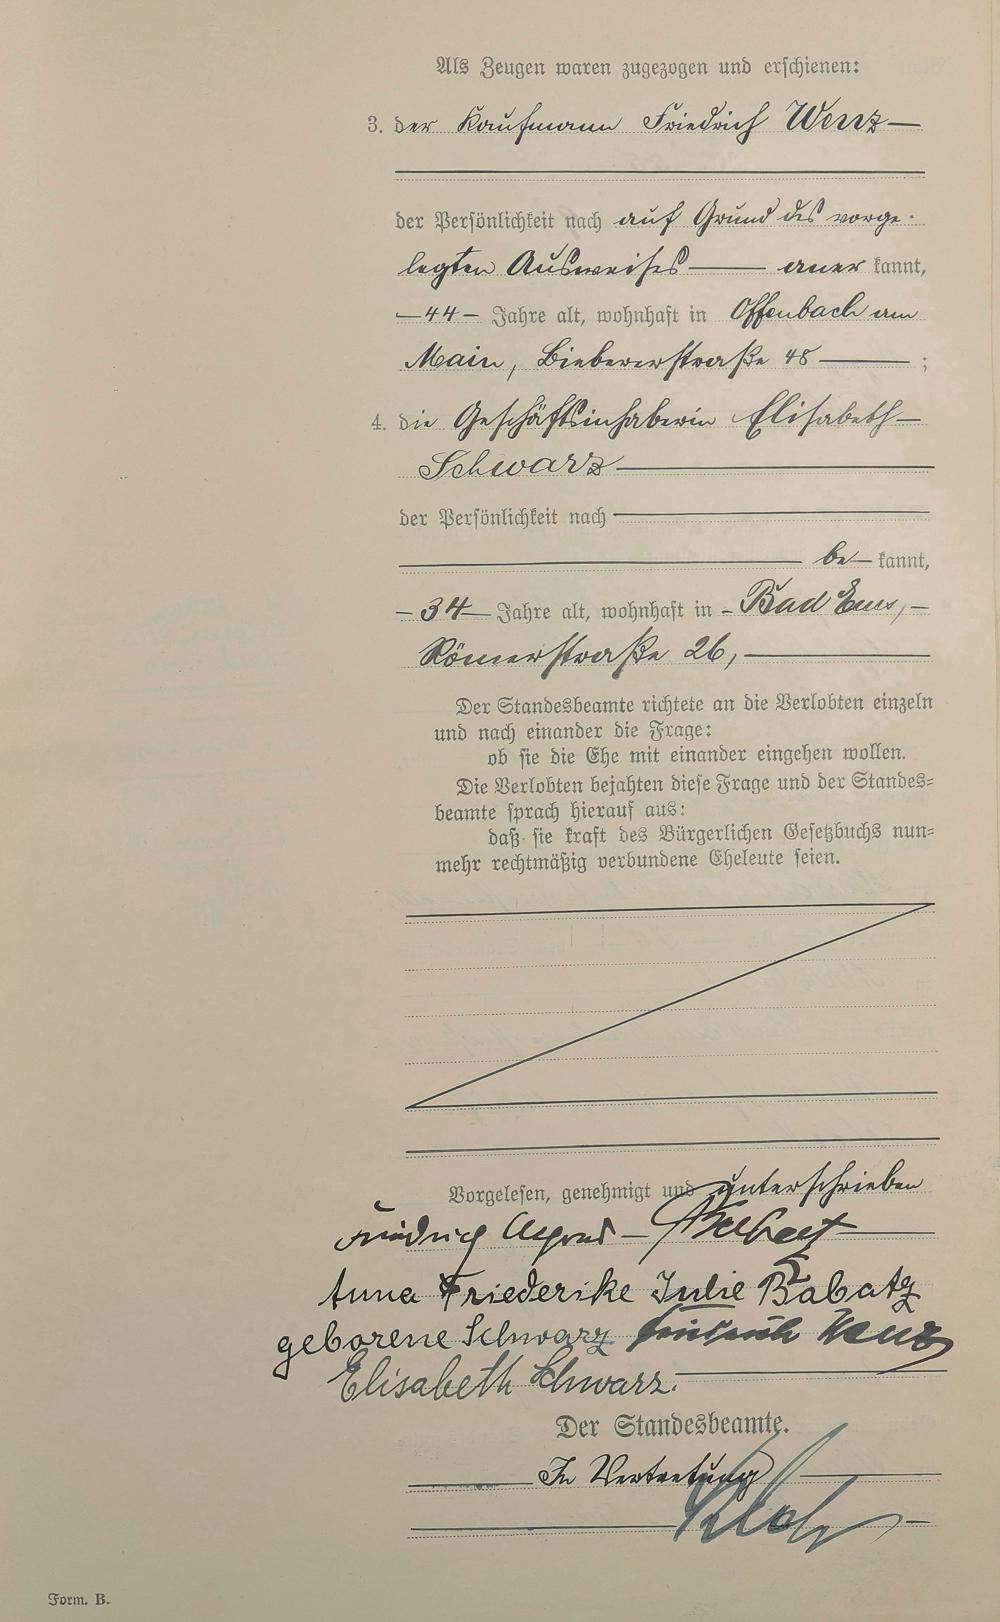 Als Zeugen waren zugezogen und erschienen:
3. der Kaufmann Friedrich Wenz
der Persönlichkeit nach auf Grund des vorge-
legten Ausweises — aner kannt,
— 44 — Jahre alt, wohnhaft in Offenbach am
Main, Biebererstraße 48 — ;
4. die Geschäftsinhaberin Elisabeth —
Schwarz —
der Persönlichkeit nach —
— be — kannt,
— 34 — Jahre alt, wohnhaft in — Bad Ems, —
Römerstraße 26, —
Der Standesbeamte richtete an die Verlobten einzeln
und nach einander die Frage:
ob sie die Ehe mit einander eingehen wollen.
Die Verlobten bejahten diese Frage und der Standes=
beamte sprach hierauf aus:
daß sie kraft des Bürgerlichen Gesetzbuchs nun=
mehr rechtmäßig verbundene Eheleute seien.
Vorgelesen, genehmigt und unterschrieben
Friedrich
Anna Friederike Julie Babatz
geborene Schwarz Friedrich Wenz
Elisabeth Schwarz.
Der Standesbeamte.
In Vertretung
Form. B.